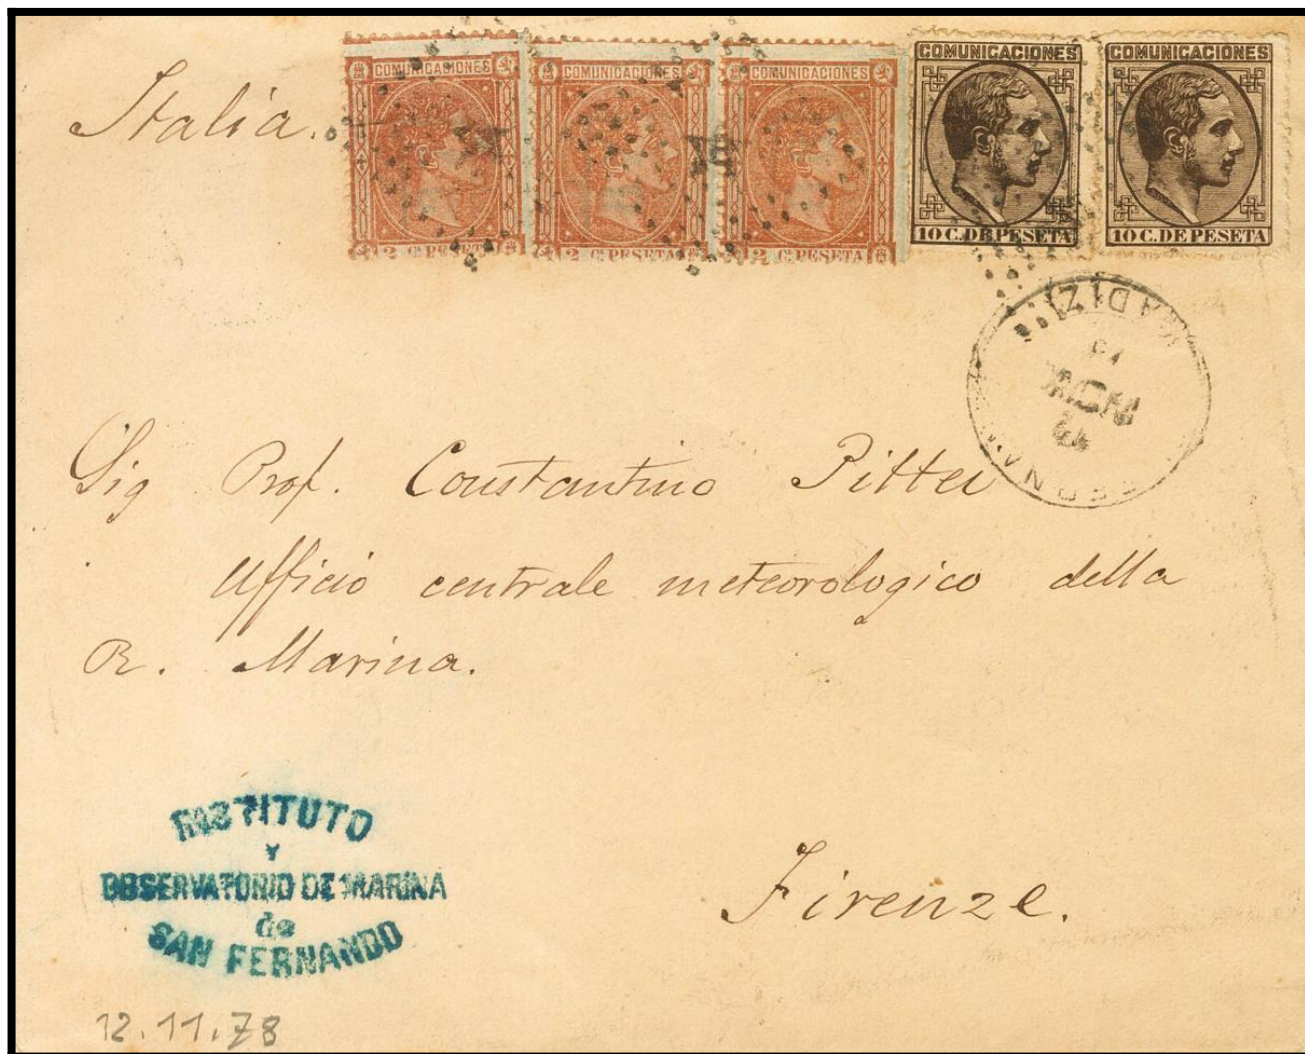 Italia.
COMUNICACIONES
2 C. PESETA
COMUNICACIONES
2 C. PESETA
COMUNICACIONES
2 C. PESETA
COMUNICACIONES
10 C. DE PESETA
COMUNICACIONES
10 C. DE PESETA
(CADIZ)
NOV
Sig Prof. Constantino Pittei
Ufficio centrale meteorologico della
R. Marina.
Firenze.
INSTITUTO
Y
OBSERVATORIO DE MARINA
de
SAN FERNANDO
12.11.78